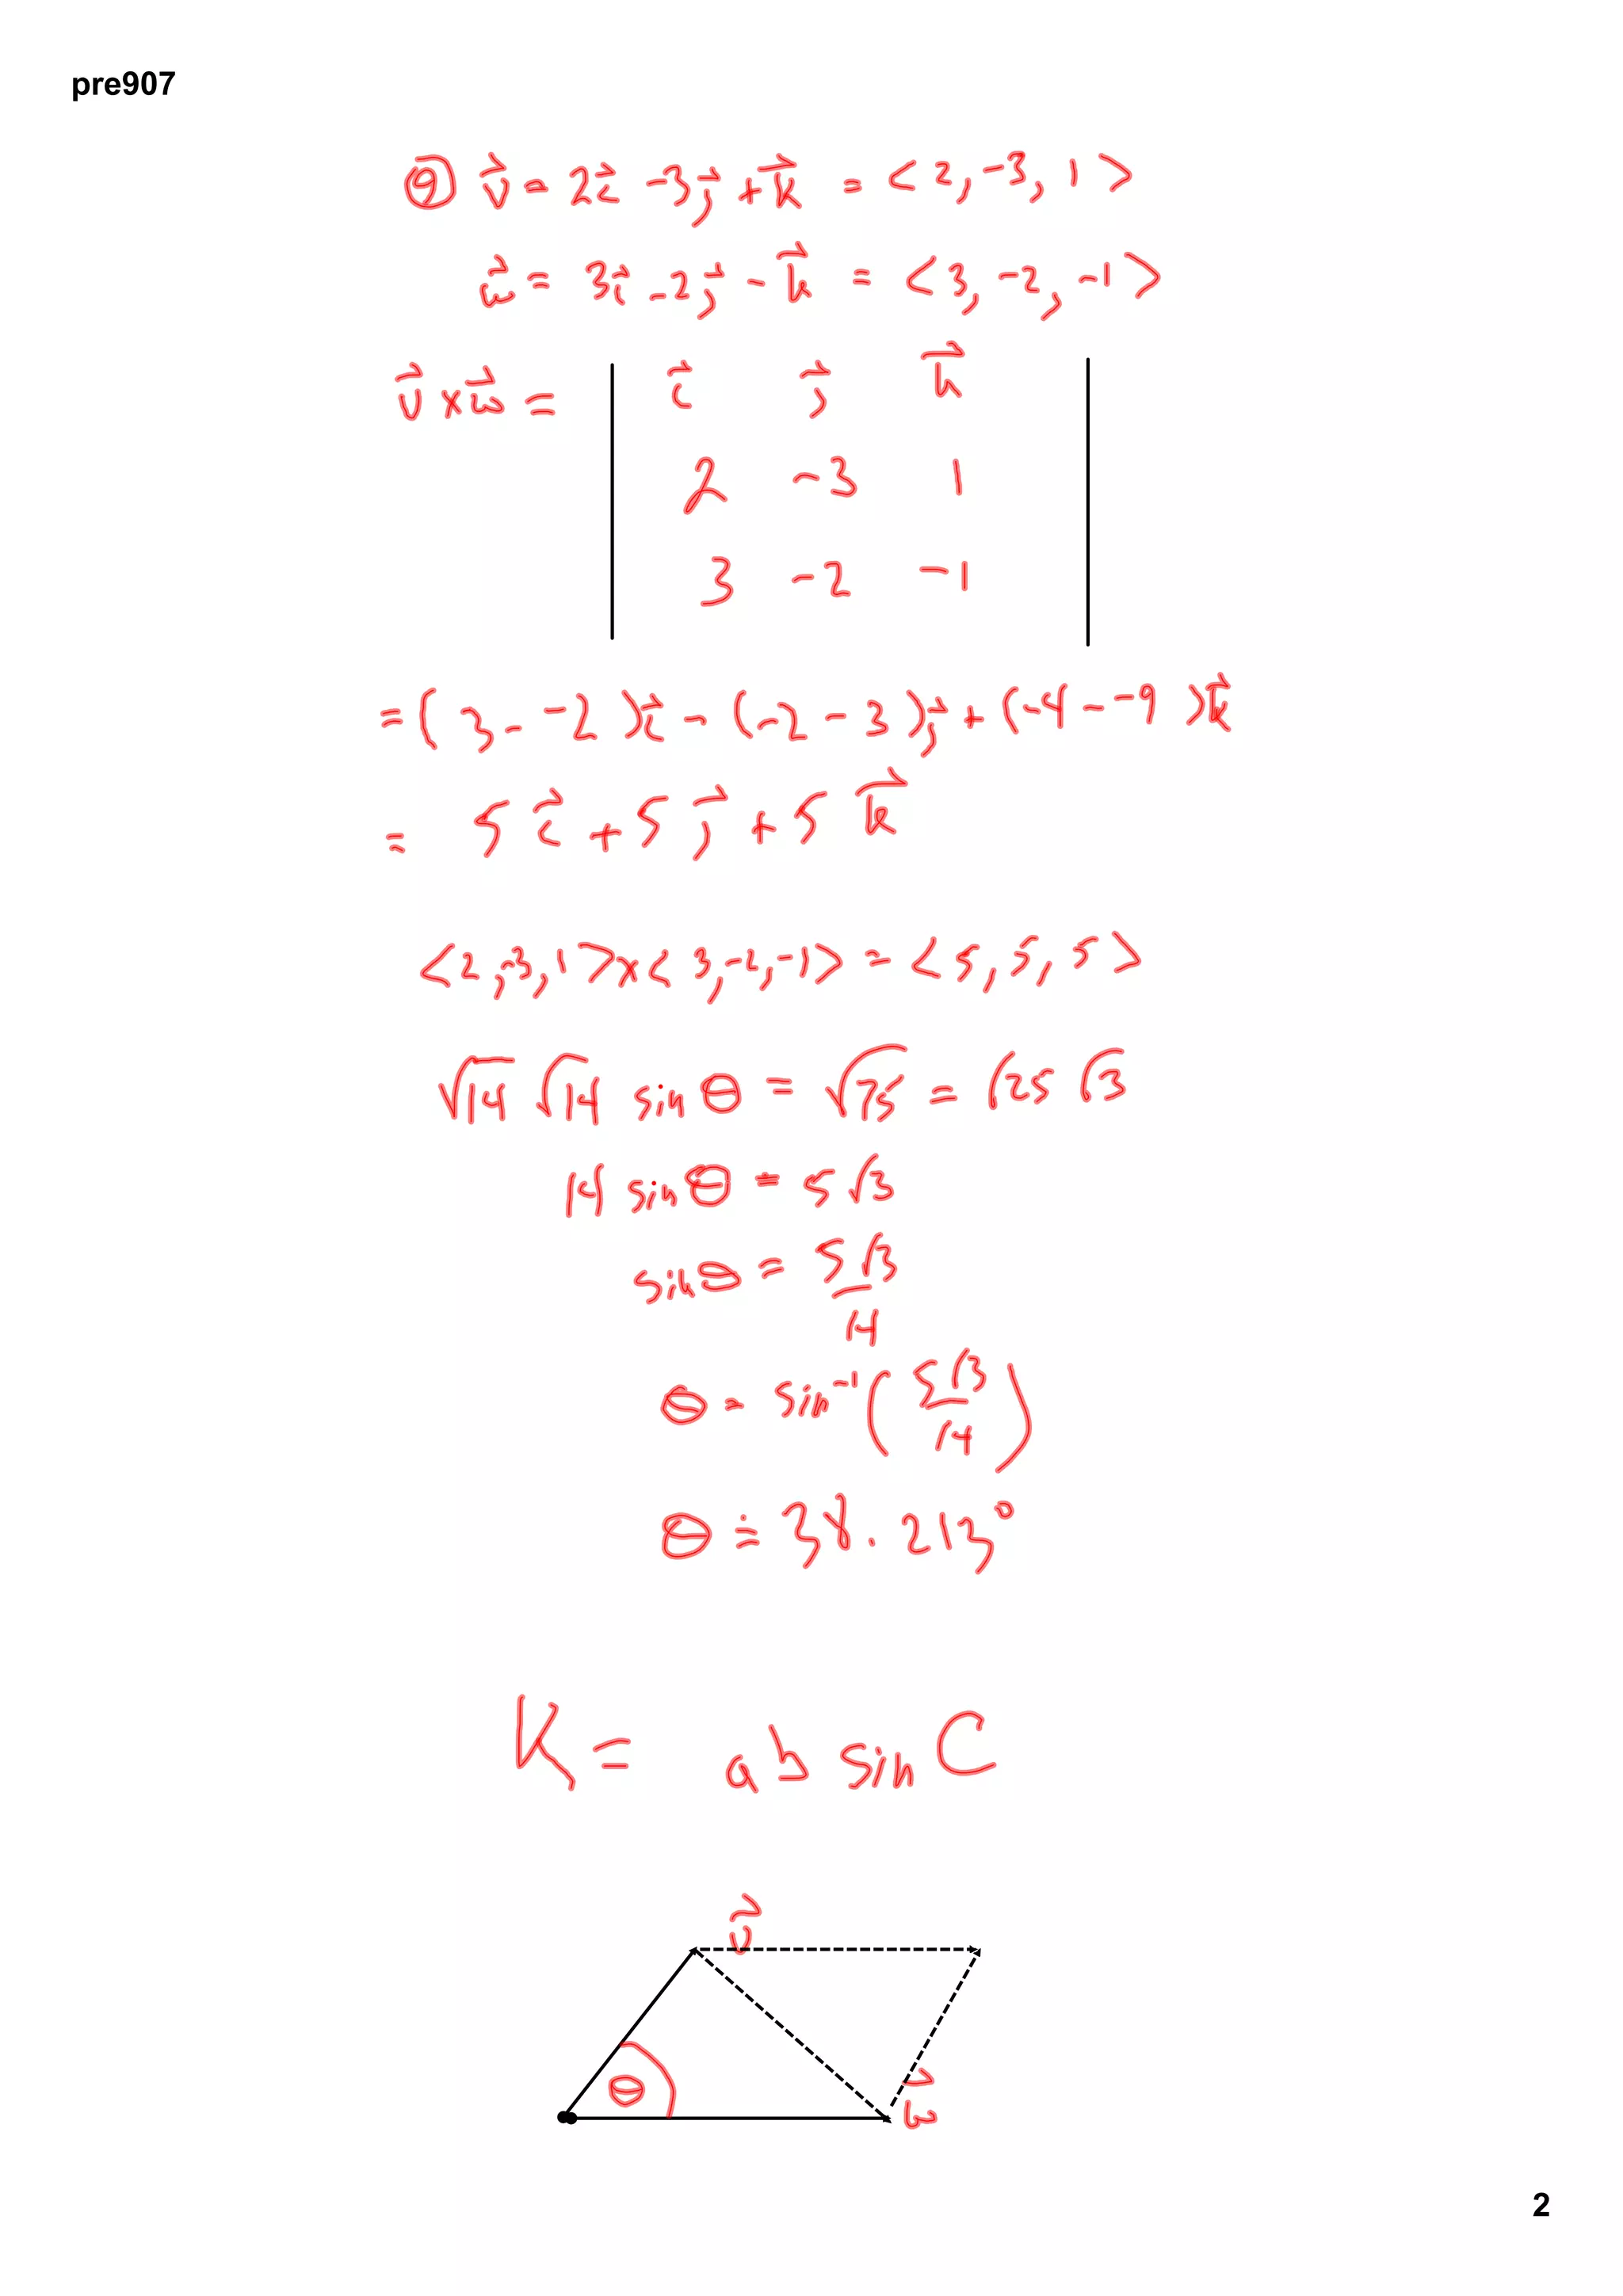 pre907
⑨ v⃗ = 2i⃗ - 3j⃗ + k⃗ = <2, -3, 1>
w⃗ = 3i⃗ - 2j⃗ - k⃗ = <3, -2, -1>
v⃗ x w⃗ = | i⃗ j⃗ k⃗ |
2 -3 1
3 -2 -1
= (3 - -2)i⃗ - (-2 - 3)j⃗ + (-4 - -9)k⃗
= 5i⃗ + 5j⃗ + 5k⃗
<2, -3, 1> x <3, -2, -1> = <5, 5, 5>
√14 √14 sin θ = √75 = √25 √3
14 sin θ = 5√3
sin θ = 5√3/14
θ = sin⁻¹(5√3/14)
θ ≐ 38.213°
K = ab sin C
v⃗
θ
w⃗
2